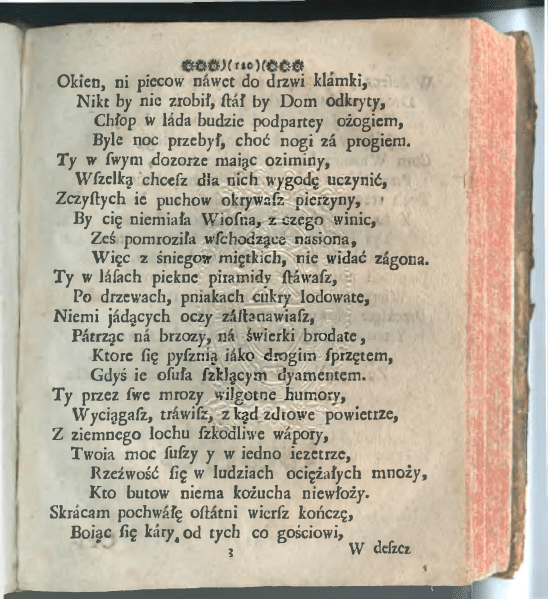 )(120)(
Okien, ni piecow náwet do drzwi klámki,
Nikt by nie zrobił, ſtáł by Dom odkryty,
Chłop w láda budzie podpartey ożogiem,
Byle noc przebył, choć nogi zá progiem.
Ty w ſwym dozorze maiąc oziminy,
Wſzelką chceſz dla nich wygodę uczynić,
Zczyſtych ie puchow okrywaſz pierzyny,
By cię niemiała Wioſna, z czego winic,
Żeś pomroziła wſchodzące nasiona,
Więc z śniegow miętkich, nie widać zágona.
Ty w láſach piekne piramidy ſtáwaſz,
Po drzewach, pniakach cukry lodowate,
Niemi jádących oczy záſtanawiaſz,
Pátrząc ná brzozy, ná świerki brodate,
Ktore ſię pyſznią iáko drogim ſprzętem,
Gdyś ie oſuła ſzklącym dyamentem.
Ty przez ſwe mrozy wilgotne humory,
Wyciągaſz, tráwiſz, z kąd zdrowe powietrze,
Z ziemnego lochu ſzkodliwe wápory,
Twoia moc ſuſzy y w iedno iezetrze,
Rzeźwość ſię w ludziach ociężałych mnoży,
Kto butow niema kożucha niewłoży.
Skrácam pochwáłę oſtátni wierſz kończę,
Boiąc ſię káry, od tych co gościowi,
3 W deſzcz